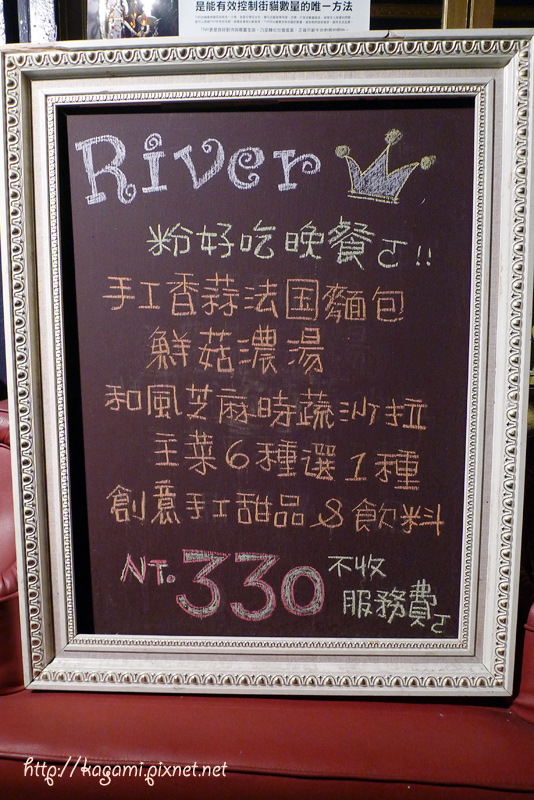 是能有效控制街貓數量的唯一方法
River
粉好吃晚餐ㄛ!!
手工香蒜法国麵包
鮮菇濃湯
和風芝麻時蔬沙拉
主菜6種選1種
創意手工甜品&飲料
NT. 330 不收
服務費ㄛ
http://kagami.pixnet.net